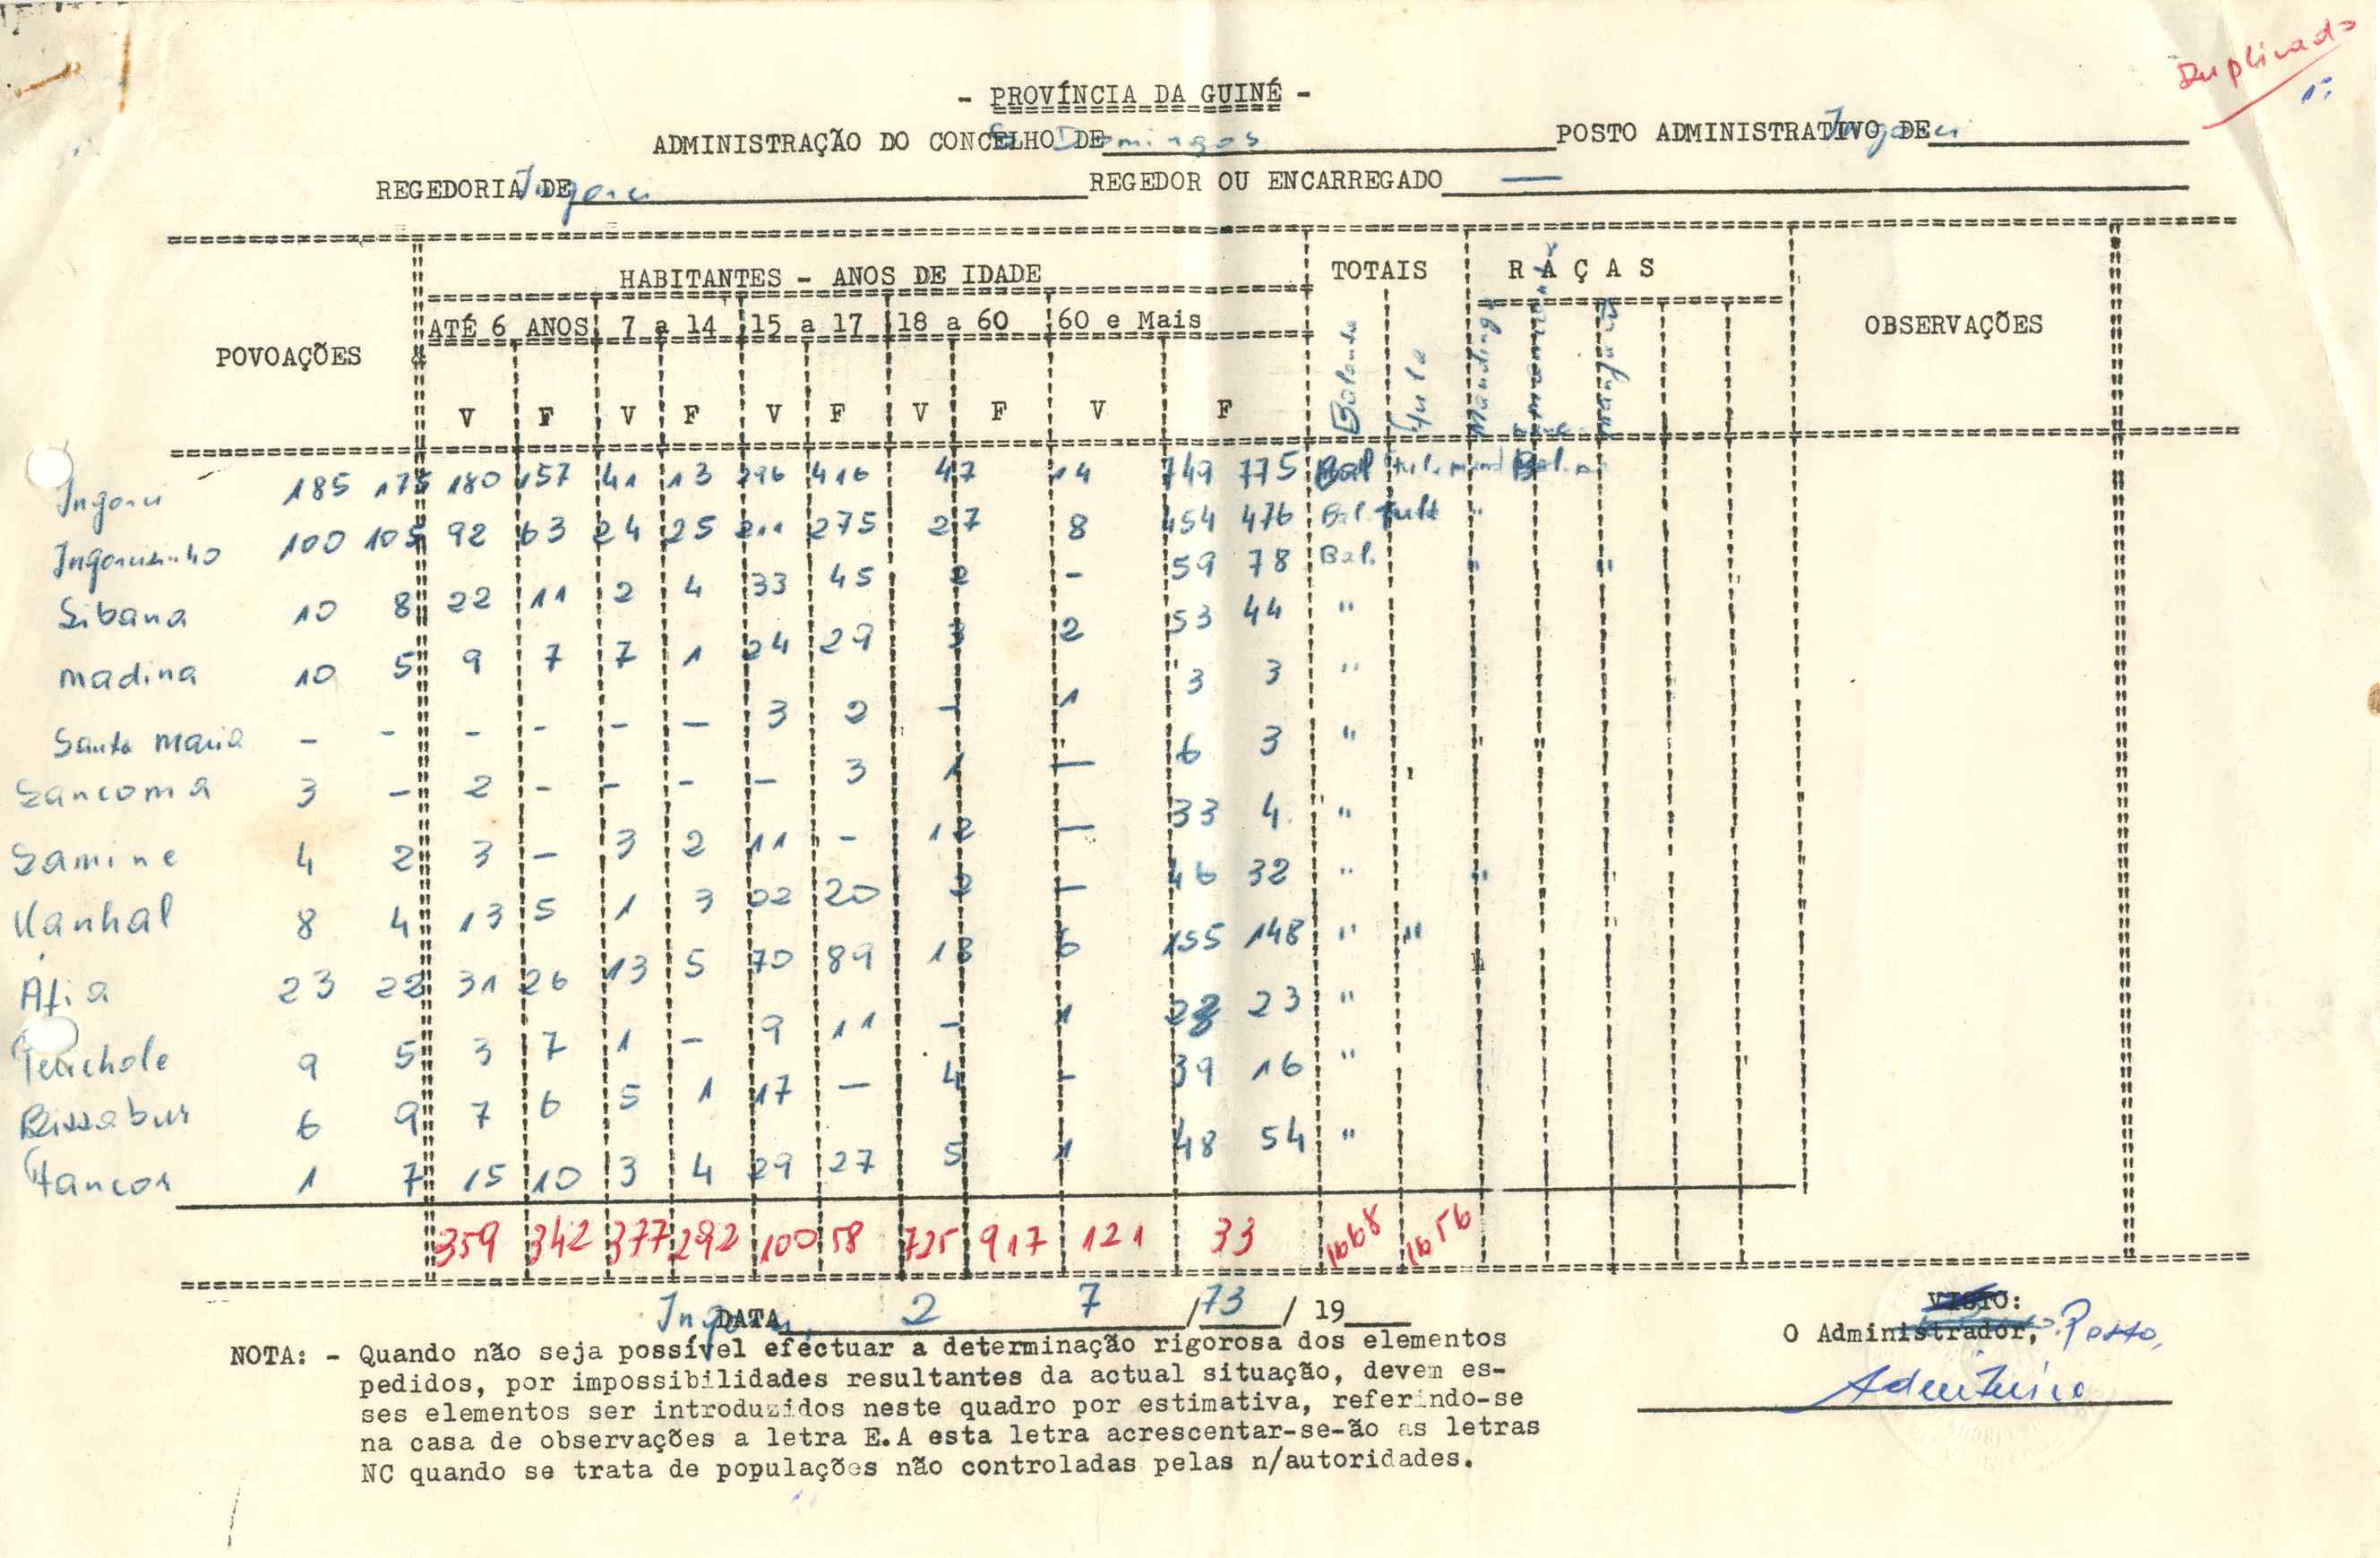 Duplicado
- PROVÍNCIA DA GUINÉ -
ADMINISTRAÇÃO DO CONCELHO DE S. Domingos POSTO ADMINISTRATIVO DE Ingoré
REGEDORIA DE Ingoré REGEDOR OU ENCARREGADO —
POVOAÇÕES HABITANTES - ANOS DE IDADE TOTAIS RAÇAS OBSERVAÇÕES
ATÉ 6 ANOS 7 a 14 15 a 17 18 a 60 60 e Mais
V F V F V F V F V F Balanta Fula Mandinga
Ingoré 185 175 180 157 41 13 296 416 47 14 749 775 Bal
Ingorezinho 100 105 92 63 24 25 211 275 27 8 454 476 Bal. fula "
Sibana 10 8 22 11 2 4 33 45 2 - 59 78 Bal. " "
Madina 10 5 9 7 7 1 24 29 3 2 53 44 "
Santa Maria - - - - - - 3 2 - 1 3 3 "
Sancoma 3 - 2 - - - - 3 1 - 6 3 "
Samine 4 2 3 - 3 2 11 - 12 - 33 4 "
Vanhal 8 4 13 5 1 3 22 20 2 - 46 32 " "
Afia 23 22 31 26 13 5 70 89 18 6 155 148 " "
9 5 3 7 1 - 9 11 - 1 23 "
Bissabur 6 9 7 6 5 1 17 - 4 - 39 16 "
1 7 15 10 3 4 29 27 5 1 48 54 "
359 342 377 292 100 58 725 917 121 33 1668 1656
Ingoré, DATA 2 7 / 73 / 19
VISTO:
O Administrador, Posto,
NOTA: - Quando não seja possível efectuar a determinação rigorosa dos elementos
pedidos, por impossibilidades resultantes da actual situação, devem es-
ses elementos ser introduzidos neste quadro por estimativa, referindo-se
na casa de observações a letra E.A esta letra acrescentar-se-ão as letras
NC quando se trata de populações não controladas pelas n/autoridades.